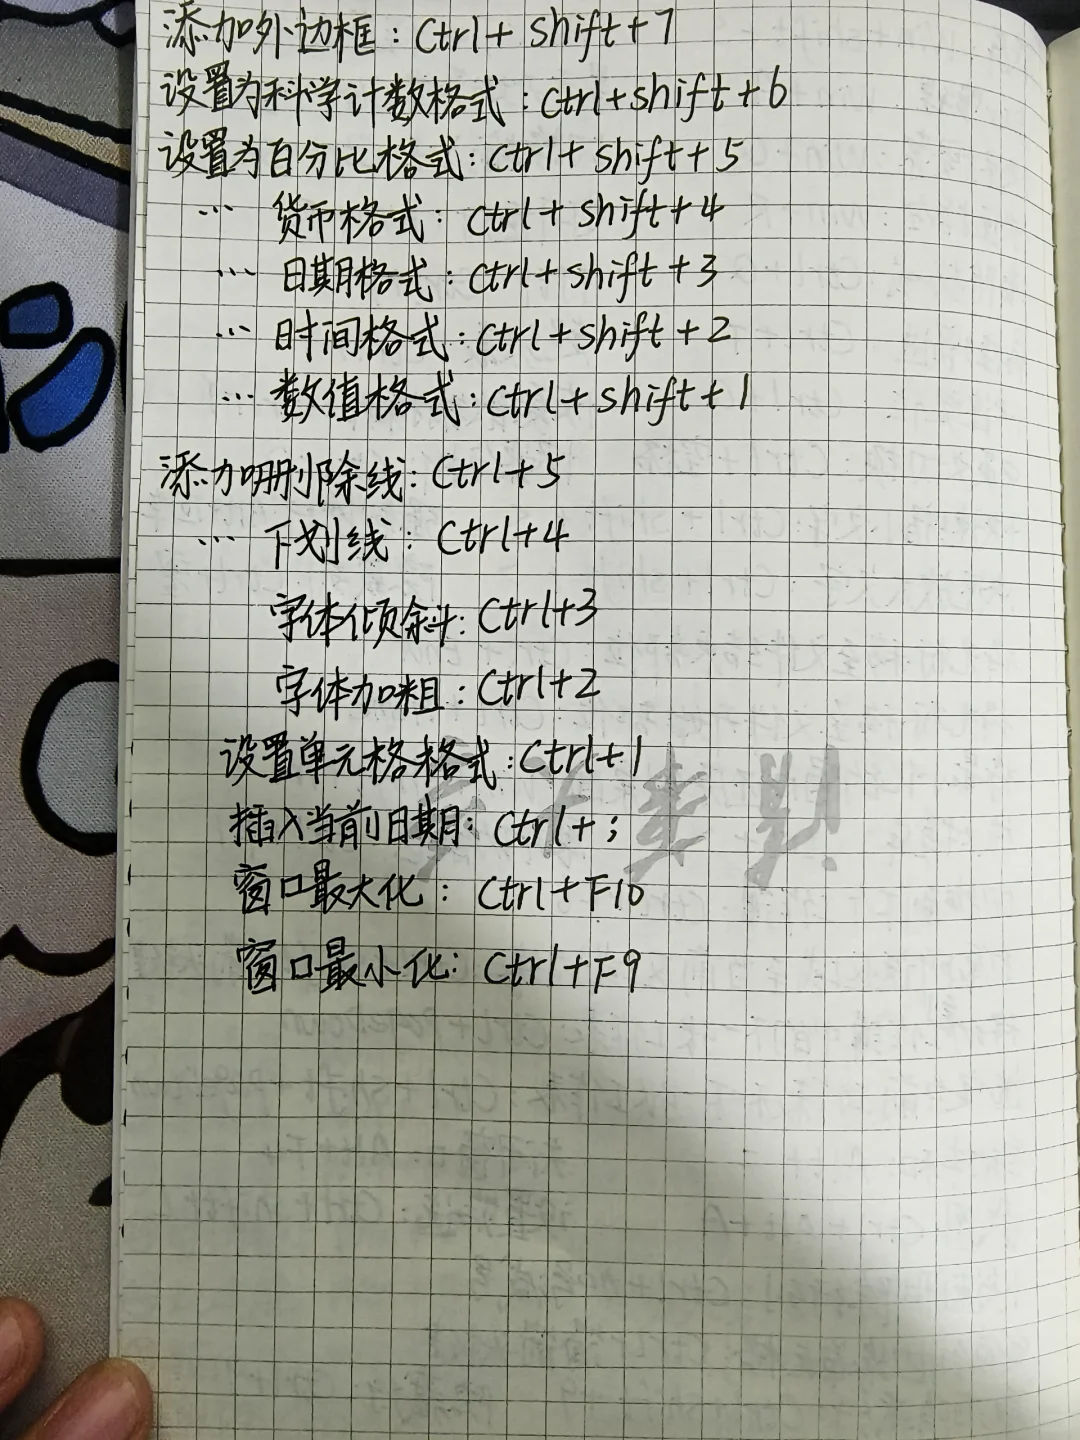 添加外边框：Ctrl+shift+7
设置为科学计数格式：ctrl+shift+6
设置为百分比格式：ctrl+shift+5
… 货币格式：ctrl+shift+4
… 日期格式：ctrl+shift+3
… 时间格式：ctrl+shift+2
… 数值格式：ctrl+shift+1
添加删除线：Ctrl+5
… 下划线：Ctrl+4
字体倾斜：Ctrl+3
字体加粗：Ctrl+2
设置单元格格式：Ctrl+1
插入当前日期：Ctrl+；
窗口最大化：Ctrl+F10
窗口最小化：Ctrl+F9